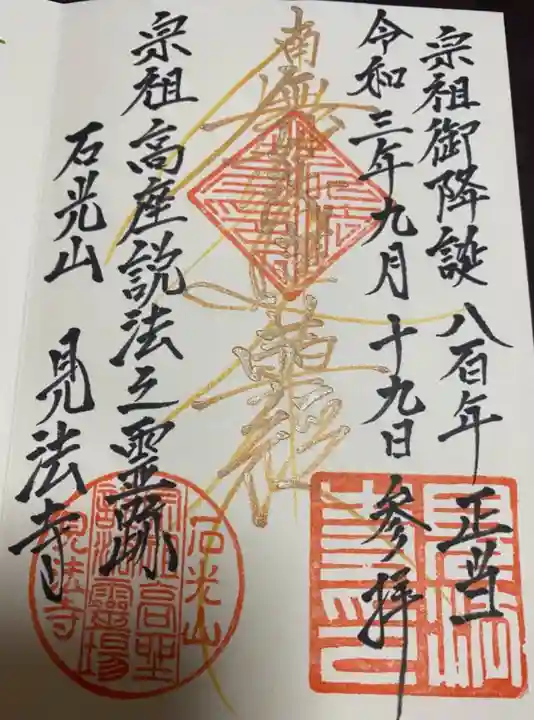 宗祖御降誕八百年正当
令和三年九月十九日参拝
南無妙法蓮華経
宗祖高座説法之霊跡
石光山 見法寺
石光山
見法寺